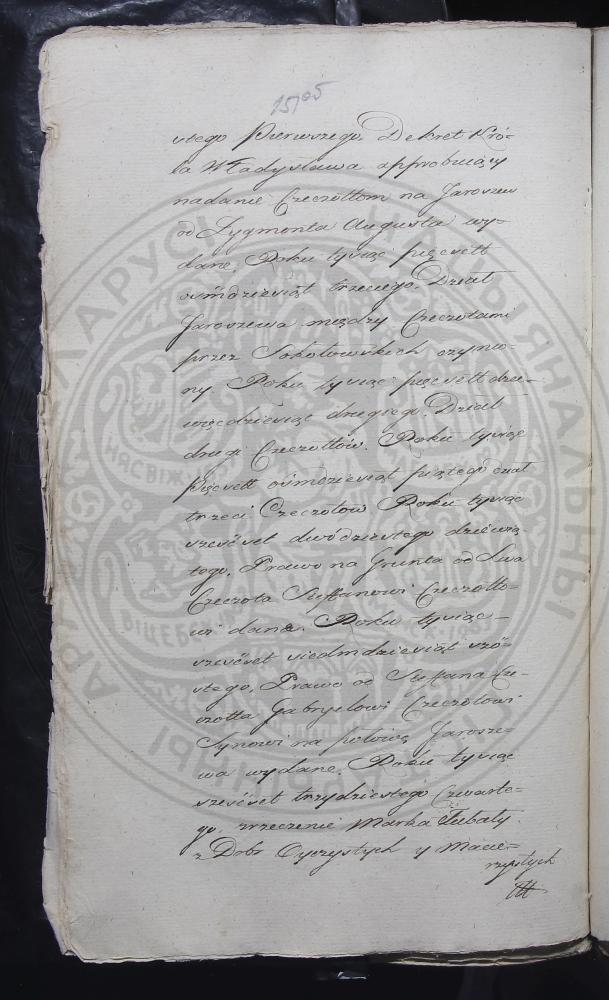 25705
stego Pierwszego, Dekret Kró-
la Władysława approbuiący
nadanie Czeczottom na Jaroszew
od Zygmonta Augusta wy-
dane, Roku tysiąc pięcsett
ośmdziesiąt trzeciego, Dział
Jaroszewa między Czeczotami
przez Sokołowskich czynio-
ny Roku tysiąc pięcsett dzie-
więdziesiąt drugiego, Dział
drugi Czeczottów. Roku tysiąc
pięcsett ośmdziesiąt piątego
trzeci Czeczotow Roku tysiąc
sześćset dwódziestego dziewią-
tego, Prawo na Grunta od Lwa
Czeczota Steffanowi Czeczotto-
wi dane. Roku tysiąc
sześćset siedmdziesiąt szó-
stego, Prawo od Steffana Cze-
czotta Gabryelowi Czeczotowi
Synowi na połowę Jarosze-
wa wydane. Roku tysiąc
sześćset trzydziestego Czwarte-
go. zrzeczenie Marka
z Dobr Oyczystych y Macie-
rzystych
АРХІЎ БЕЛАРУСІ
НАЦЫЯНАЛЬНЫ
НЯСВІЖ
ВІЦЕБСК